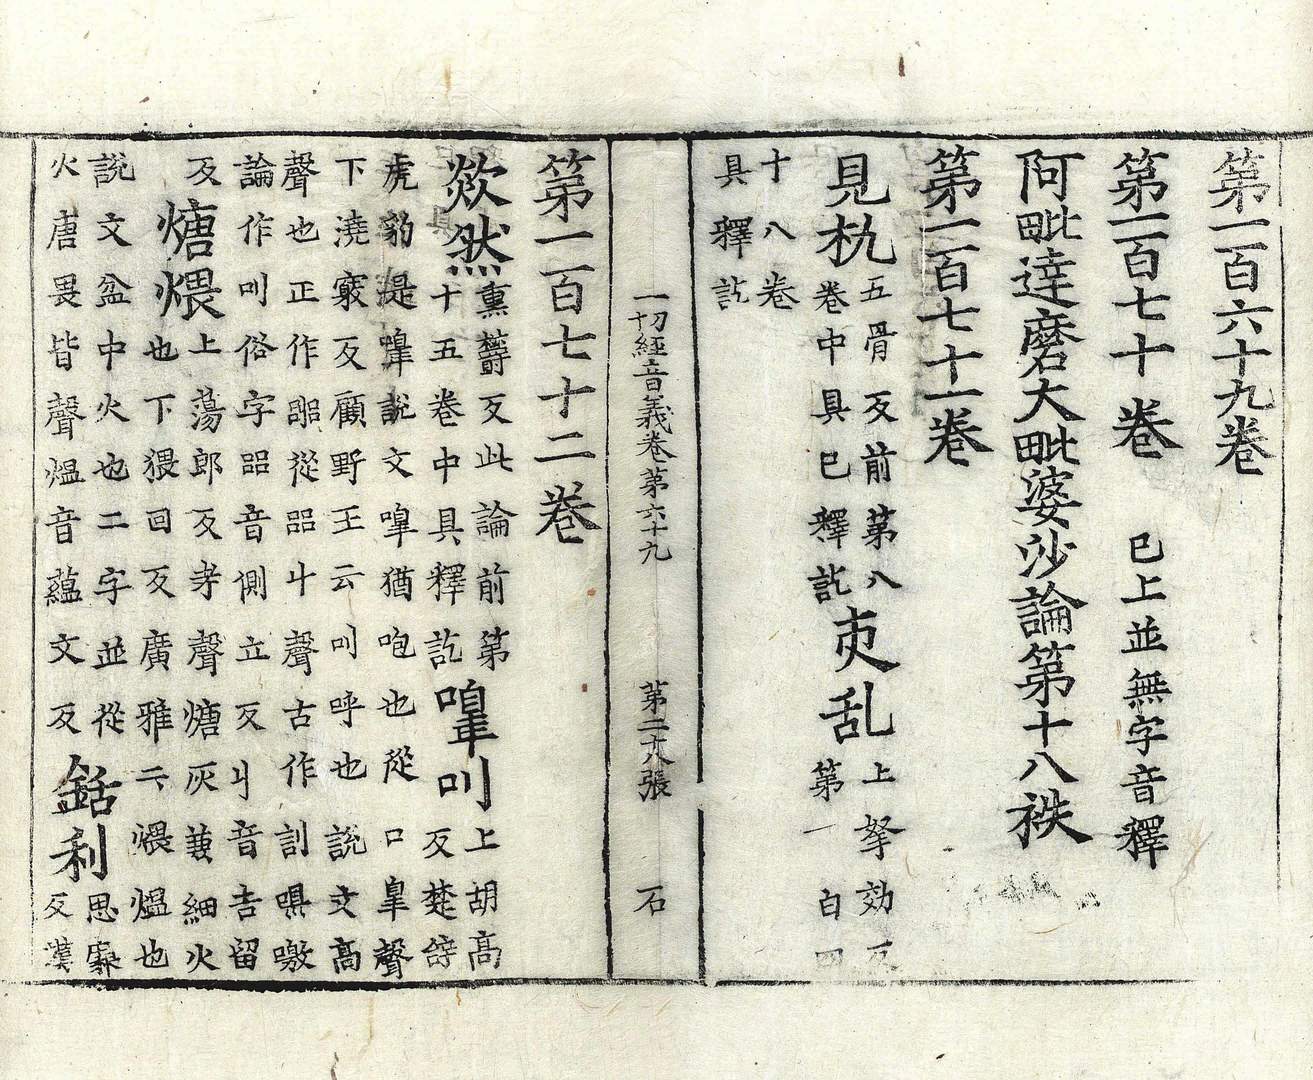 第一百六十九卷
第一百七十卷 已上並無字音釋
阿毗達磨大毗婆沙論第十八袟
第一百七十一卷
見杌 五骨反前第八
卷中具已釋訖 吏乱 上拏効反
第一白四
十八卷
具釋訖
一切經音義卷第六十九 第二十八張 石
第一百七十二卷
歘然 熏欝反此論前第
十五卷中具釋訖 嘷叫 上胡高
反楚辞
虎豹是嘷說文嘷猶咆也從口臯聲
下澆竅反顧野王云叫呼也說文高
聲也正作嘂從㗊丩聲古作訆噭
論作叫俗字㗊音側立反丩音吉留
反 煻煨 上蕩郎反考聲煻灰兼細火
也下猥回反廣雅云煨熅也
說文盆中火也二字並從
火唐畏皆聲熅音蘊文反 銛利 思廉
反漢